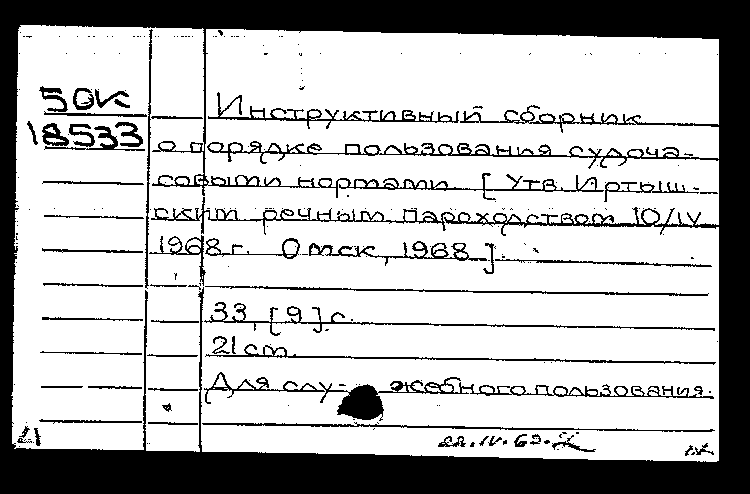 50К
18533
Инструктивный сборник
о порядке пользования судоча-
совыми нормами. [Утв. Иртыш-
ским речным пароходством 10/IV
1968 г. Омск, 1968].
33, [9] с.
21 cm.
Для слу- жебного пользования.
22.IV.69.